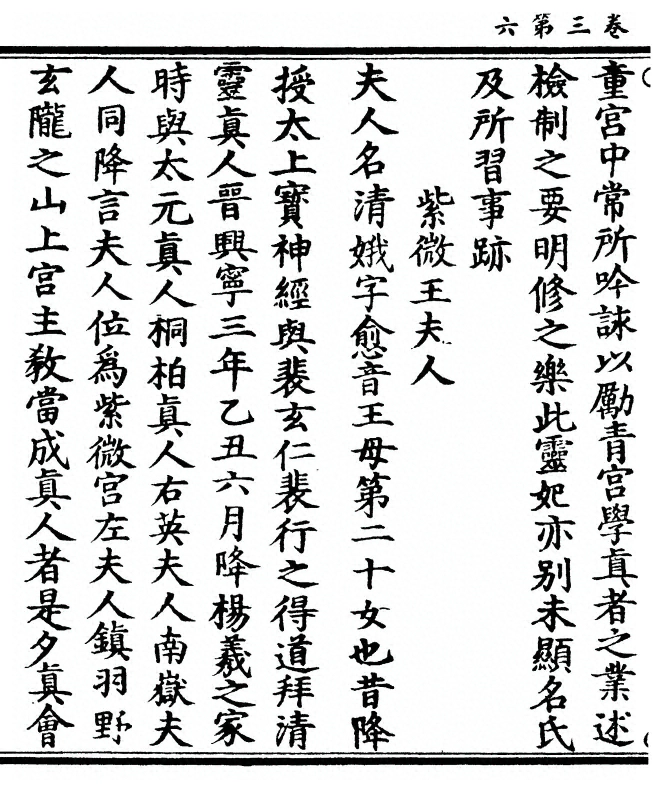 卷三第六
童宮中常所吟誄以勵青宮學真者之業述
檢制之要明修之樂此靈妃亦別未顯名氏
及所習事跡
紫微王夫人
夫人名清娥字愈音王母第二十女也昔降
授太上寶神經與裴玄仁裴行之得道拜清
靈真人晉興寧三年乙丑六月降楊羲之家
時與太元真人桐柏真人右英夫人南嶽夫
人同降言夫人位為紫微宮左夫人鎮羽野
玄隴之山上宮主教當成真人者是夕真會